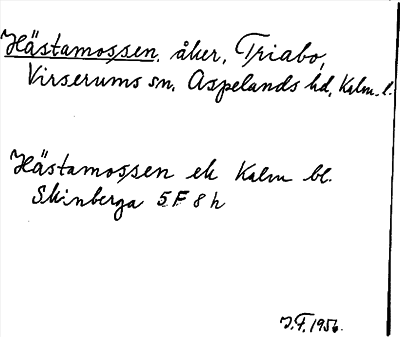 Hästamossen, åker, Triabo,
Virserums sn, Aspelands hd, Kalm. l.
Hästamossen ek Kalm bl.
Skinberga 5 F 8 h
J.F. 1956.